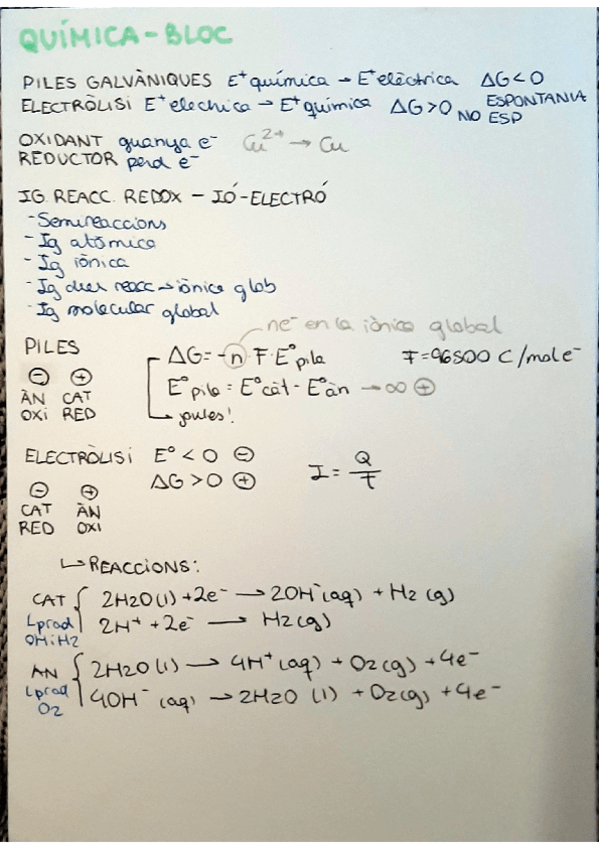 QUÍMICA-BLOC
PILES GALVÀNIQUES E⁺química → E⁺elèctrica ΔG<0 ESPONTANIA
ELECTRÒLISI E⁺elechica → E⁺química ΔG>0 NO ESP
OXIDANT guanya e⁻ Cu²⁺ → Cu
REDUCTOR perd e⁻
IG. REACC. REDOX - IÓ-ELECTRÓ
- Semireaccions
- Ig atòmica
- Ig iònica
- Ig dues reacc → iònica glob
- Ig molecular global
ne⁻ en la iònica global
PILES
ΔG = -n·F·E°pila F=96500 C/mol e⁻
⊖ ⊕
E°pila = E°càt - E°àn → ∞ ⊕
ÀN CAT
OXI RED
↳ joules!
ELECTRÒLISI E° < 0 ⊖
ΔG > 0 ⊕
I = Q/T
⊖ ⊕
CAT ÀN
RED OXI
↳ REACCIONS:
CAT { 2H2O(l) + 2e⁻ → 2OH⁻(aq) + H2(g)
↳prod OH i H2
2H⁺ + 2e⁻ → H2(g)
AN { 2H2O(l) → 4H⁺(aq) + O2(g) + 4e⁻
↳prod O2
4OH⁻(aq) → 2H2O (l) + O2(g) + 4e⁻